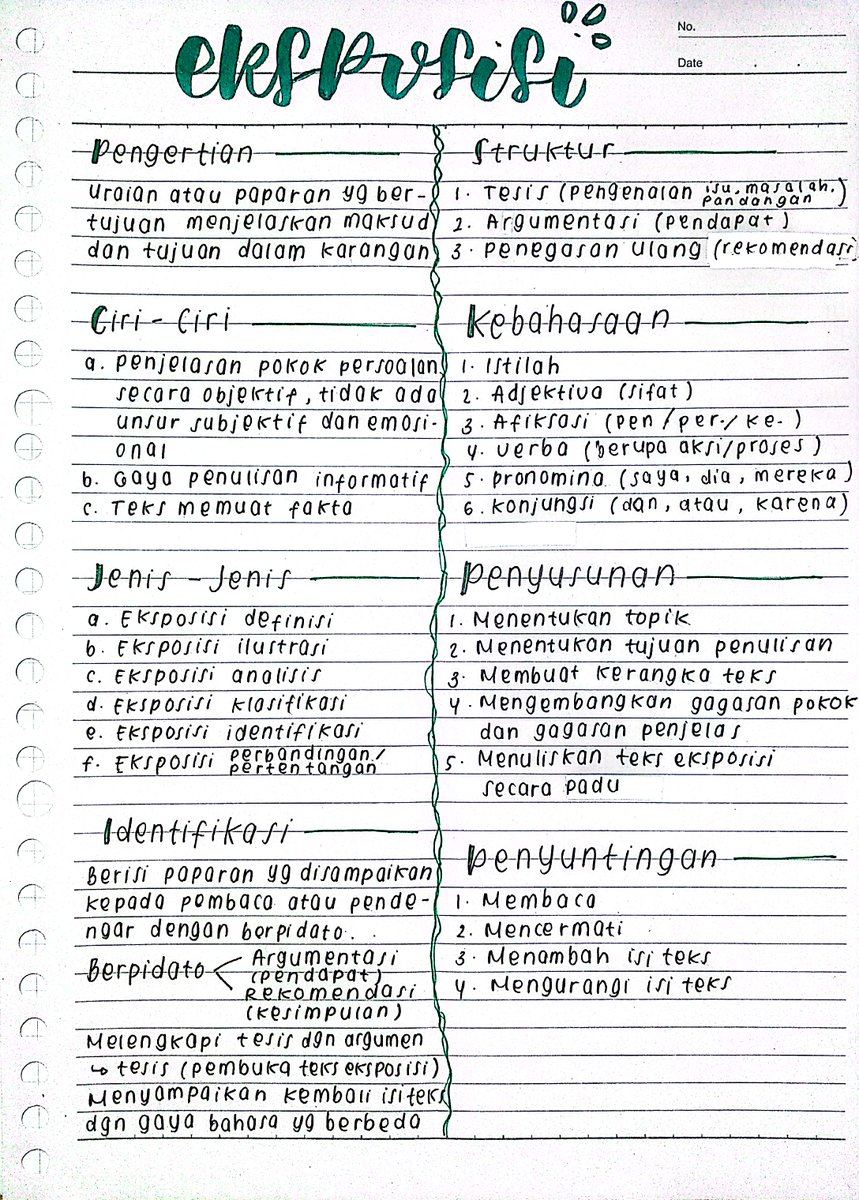 eksposisi
No.
Date
Pengertian
Uraian atau paparan yg ber-
tujuan menjelaskan maksud
dan tujuan dalam karangan
Ciri - Ciri
a. Penjelasan pokok persoalan
secara objektif, tidak ada
unsur subjektif dan emosi-
onal
b. Gaya penulisan informatif
c. Teks memuat fakta
Jenis - Jenis
a. Eksposisi definisi
b. Eksposisi ilustrasi
c. Eksposisi analisis
d. Eksposisi klasifikasi
e. Eksposisi identifikasi
f. Eksposisi perbandingan/
pertentangan
Identifikasi
Berisi paparan yg disampaikan
kepada pembaca atau pende-
ngar dengan berpidato.
Berpidato < Argumentasi
(pendapat)
Rekomendasi
(kesimpulan)
Melengkapi tesis dgn argumen
↳ tesis (pembuka teks eksposisi)
Menyampaikan kembali isi teks
dgn gaya bahasa yg berbeda
Struktur
1. Tesis (pengenalan isu, masalah,
pandangan
2. Argumentasi (pendapat)
3. Penegasan ulang (rekomendasi)
Kebahasaan
1. Istilah
2. Adjektiva (sifat)
3. Afiksasi (pen / per- / ke- )
4. Verba (berupa aksi/proses)
5. Pronomina (saya, dia, mereka)
6. Konjungsi (dan, atau, karena)
Penyusunan
1. Menentukan topik
2. Menentukan tujuan penulisan
3. Membuat kerangka teks
4. Mengembangkan gagasan pokok
dan gagasan penjelas
5. Menuliskan teks eksposisi
secara padu
Penyuntingan
1. Membaca
2. Mencermati
3. Menambah isi teks
4. Mengurangi isi teks